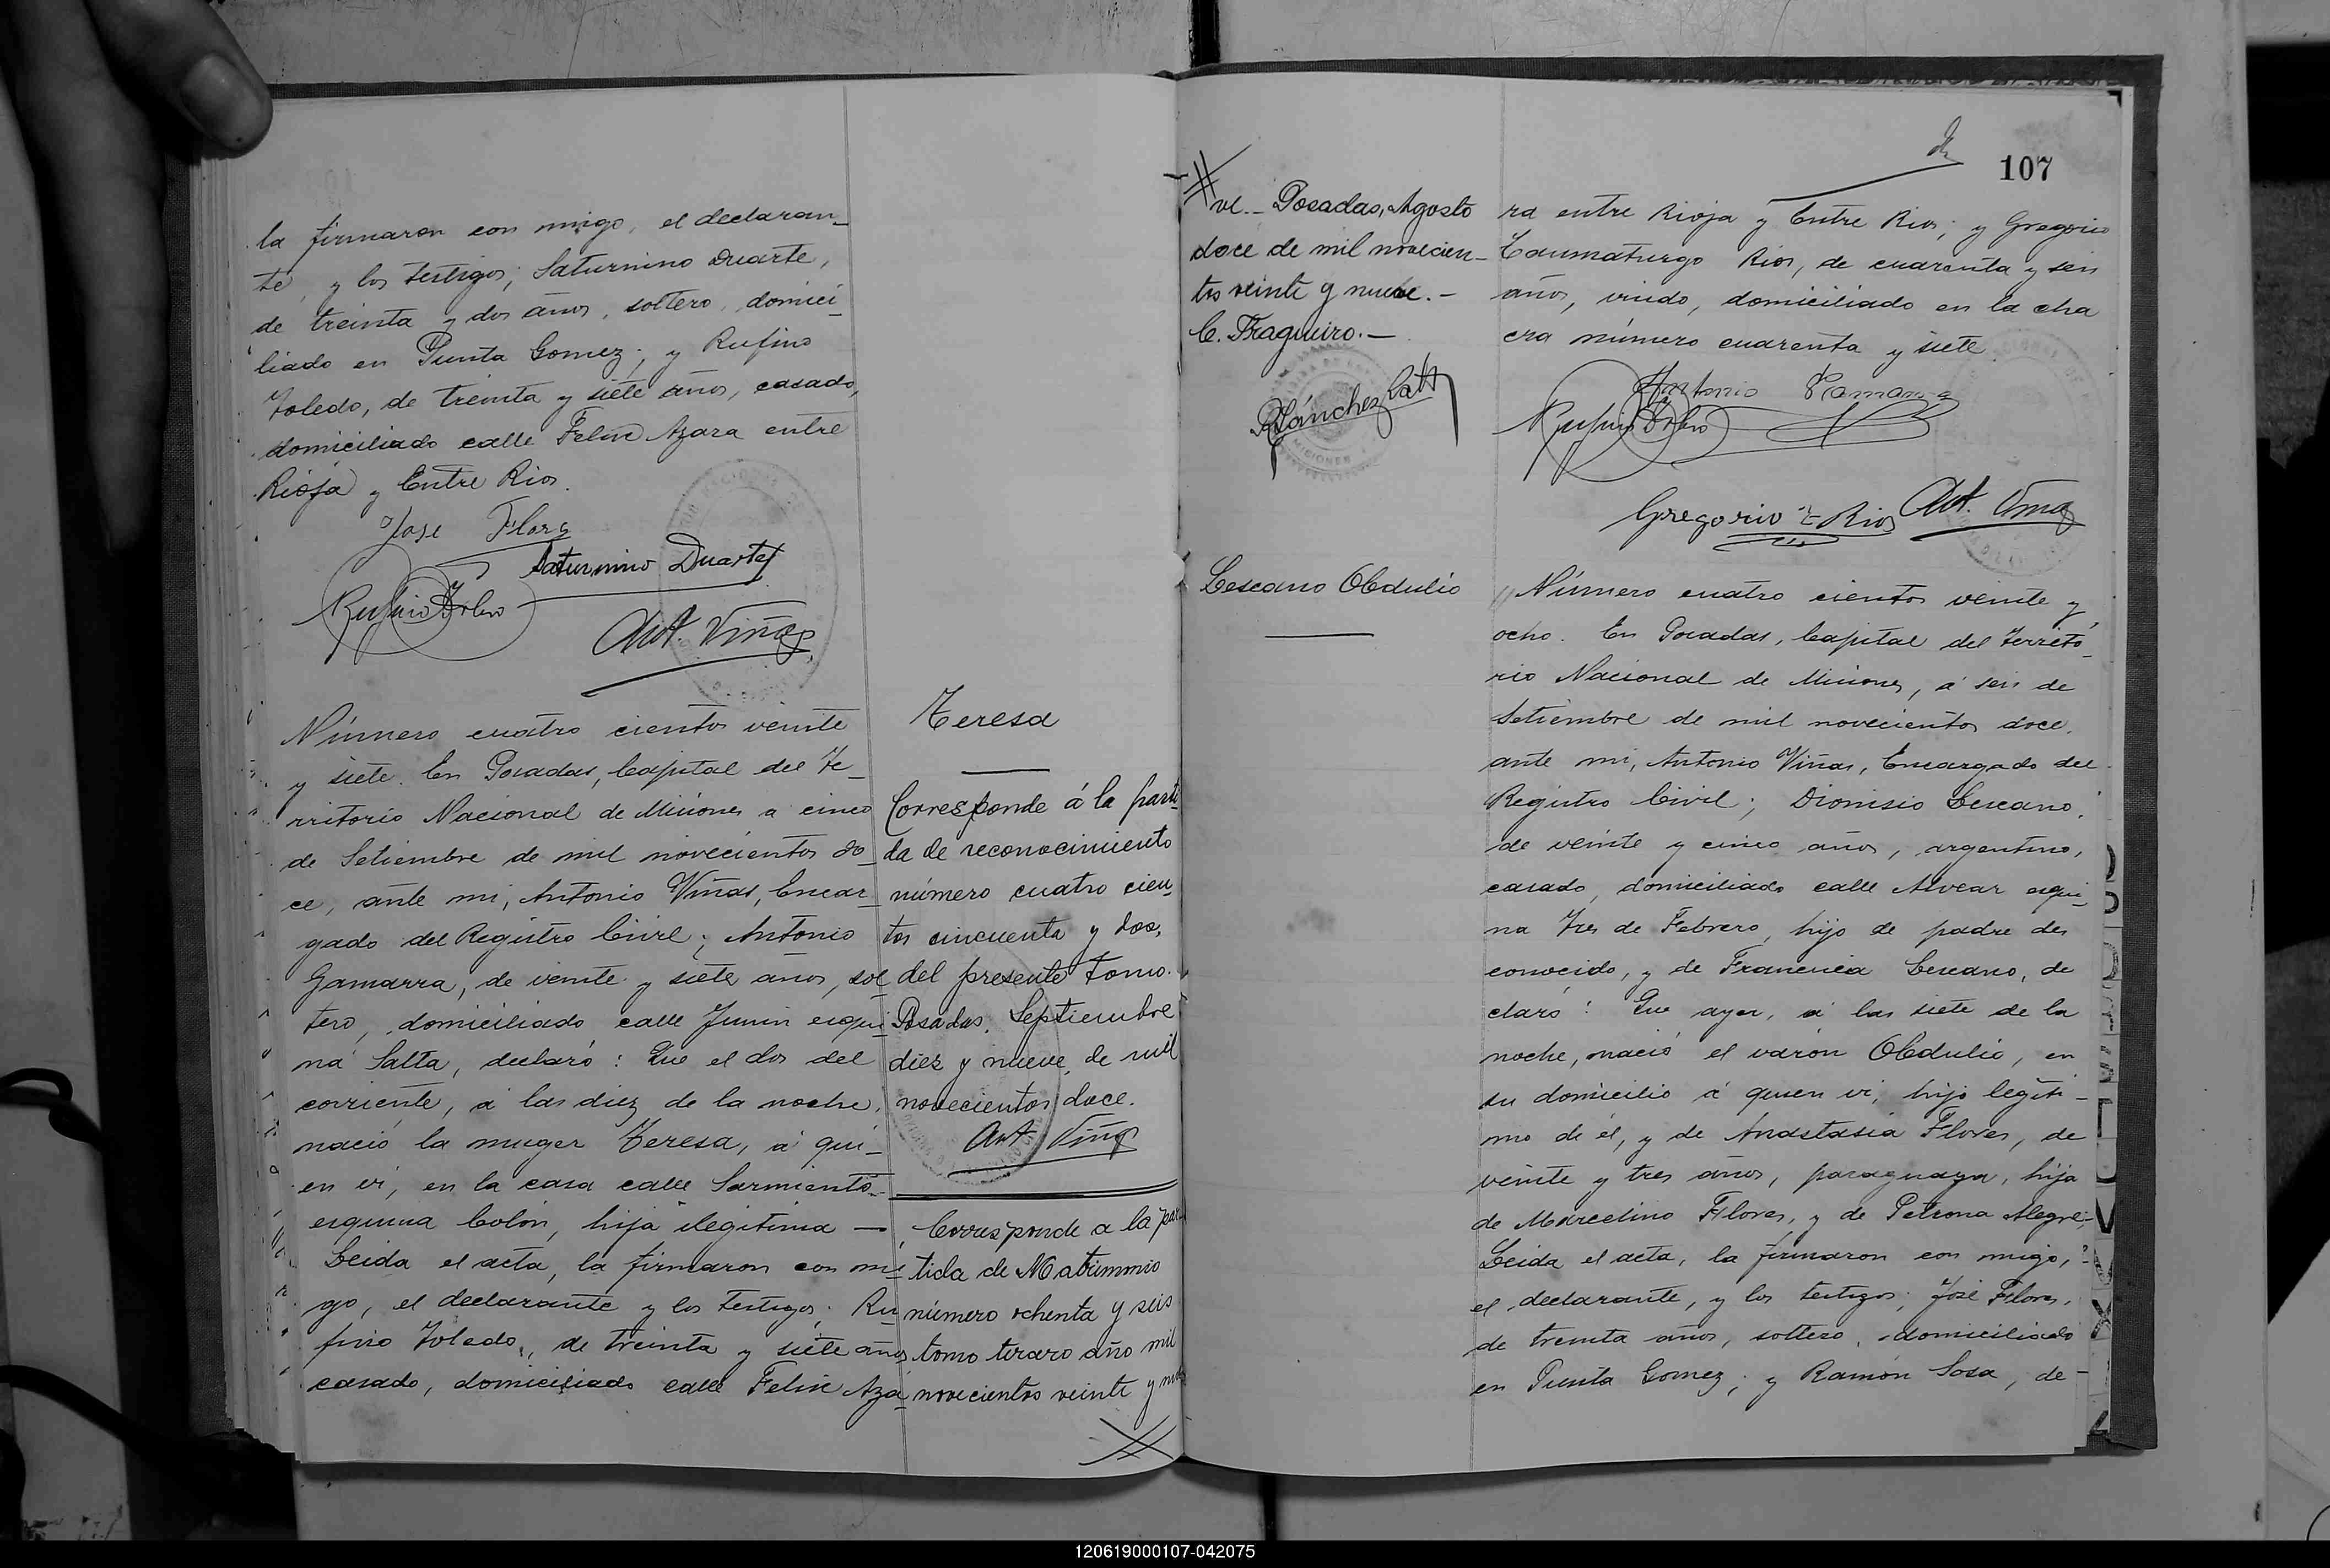 la firmaron con migo, el declaran-
te, y los testigos; Saturnino Duarte,
de treinta y dos años, soltero, domici-
liado en Punta Gomez; y Rufino
Toledo, de treinta y siete años, casado,
domiciliado calle Felix Azara entre
Rioja y Entre Rios.
Jose Flores
Saturnino Duarte
Rufino Toledo
Ant. Viñas
Número cuatro cientos veinte
y siete. En Posadas, Capital del Te-
rritorio Nacional de Misiones a cinco
de Setiembre de mil novecientos do-
ce, ante mi, Antonio Viñas, Encar-
gado del Registro Civil; Antonio
Gamarra, de veinte y siete años, sol-
tero, domiciliado calle Junin esqui-
na Salta, declaró: Que el dos del
corriente, á las diez de la noche,
nació la muger Teresa, á qui-
en vi, en la casa calle Sarmiento
esquina Colón, hija ilegitima —
Leida el acta, la firmaron con mi-
go, el declarante y los testigos; Ru-
fino Toledo, de treinta y siete años
casado, domiciliado calle Felix Aza-
Teresa
Corresponde á la parti-
da de reconocimiento
número cuatro cien-
tos cincuenta y dos,
del presente tomo.
Posadas, Septiembre
diez y nueve, de mil
novecientos doce.
Ant. Viñas
Corresponde a la par-
tida de Matrimonio
número ochenta y seis
tomo tercero año mil
novecientos veinte y nue
ve.- Posadas, Agosto
doce de mil novecien-
tos veinte y nueve.-
C. Fragueiro.-
RSánchez Ratti
107
ra entre Rioja y Entre Rios; y Gregorio
Taumaturgo Rios, de cuarenta y seis
años, viudo, domiciliado en la cha
cra número cuarenta y siete.
Antonio Gamarra
Rufino Toledo
Gregorio T Rios
Ant. Viñas
Lescano Obdulio
Número cuatro cientos veinte y
ocho. En Posadas, Capital del Territo-
rio Nacional de Misiones, á seis de
Setiembre de mil novecientos doce,
ante mi, Antonio Viñas, Encargado del
Registro Civil; Dionisio Lescano,
de veinte y cinco años, argentino,
casado, domiciliado calle Alvear esqui-
na Tres de Febrero, hijo de padre des
conocido, y de Francisca Lescano, de
claró: Que ayer, á las siete de la
noche, nació el varón Obdulio, en
su domicilio á quien vi, hijo legiti-
mo de él, y de Anastasia Flores, de
veinte y tres años, paraguaya, hija
de Marcelino Flores, y de Petrona Alegre;
Leida el acta, la firmaron con migo,
el declarante, y los testigos; José Flores,
de treinta años, soltero, domiciliado
en Punta Gomez; y Ramón Sosa, de-
120619000107-042075